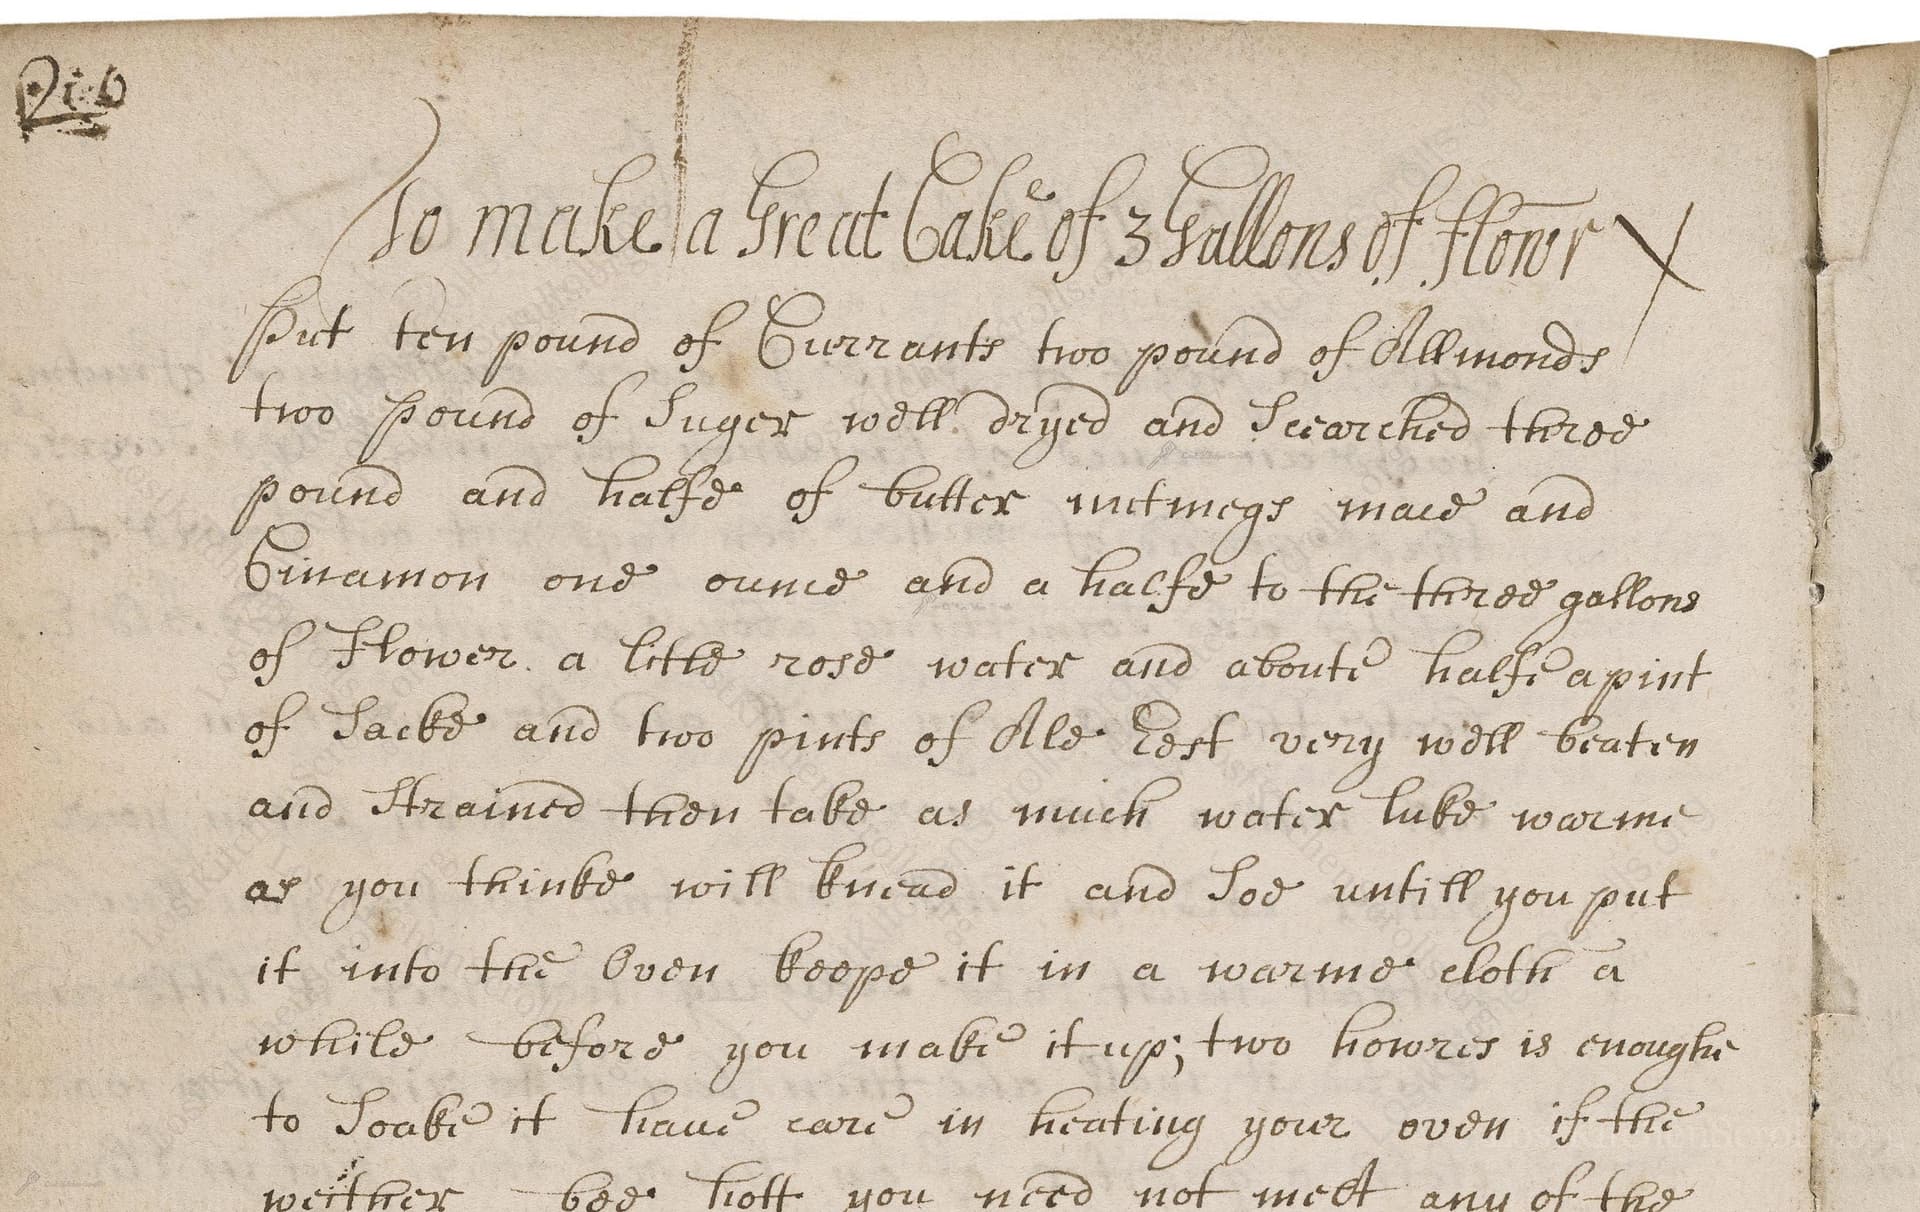 To make a Great Cake of 3 Gallons of flowr
Put ten pound of Currants two pound of Allmonds
two pound of Suger well dryed and Scearched three
pound and halfe of butter nutmegs mace and
Cinamon one ounce and a halfe to the three gallons
of Flower a little rose water and aboute halfe a pint
of Sacke and two pints of Ale Yest very well beaten
and Strained then take as much water luke warme
as you thinke will knead it and Soe untill you put
it into the Oven keepe it in a warme cloth a
while before you make it up; two howres is enoughe
to Soake it have care in heating your oven if the
weither bee hott you need not melt any of the